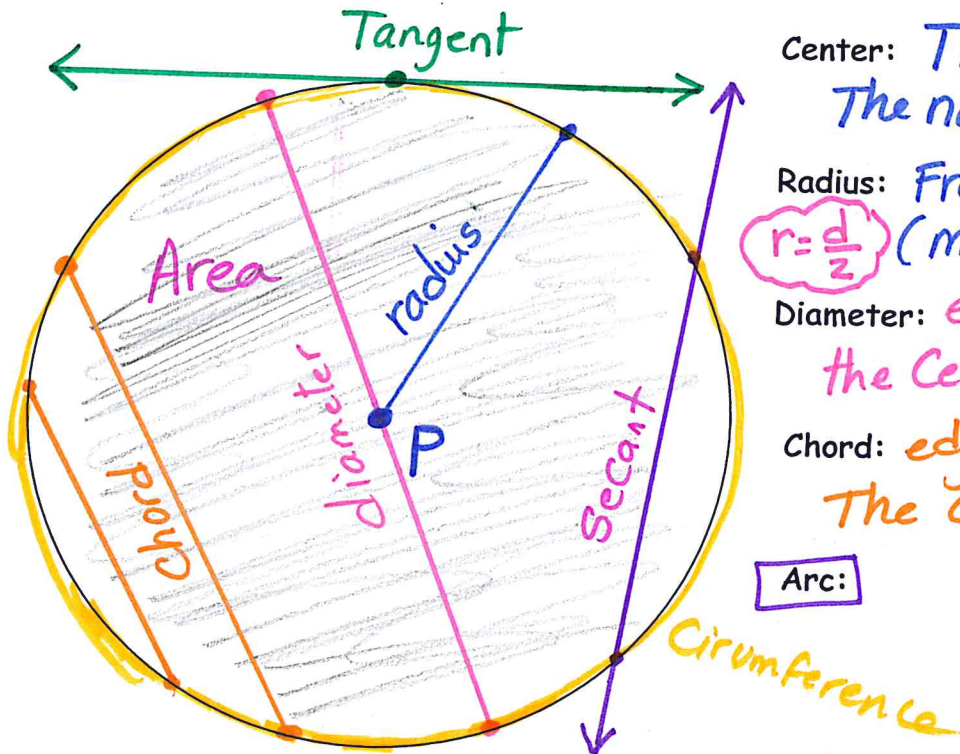 Tangent
Area
radius
diameter
P
Chord
Secant
Cirumference
Center:
The
Radius: Fro
r=d/2 (m
Diameter: e
the Ce
Chord: ed
The
Arc: